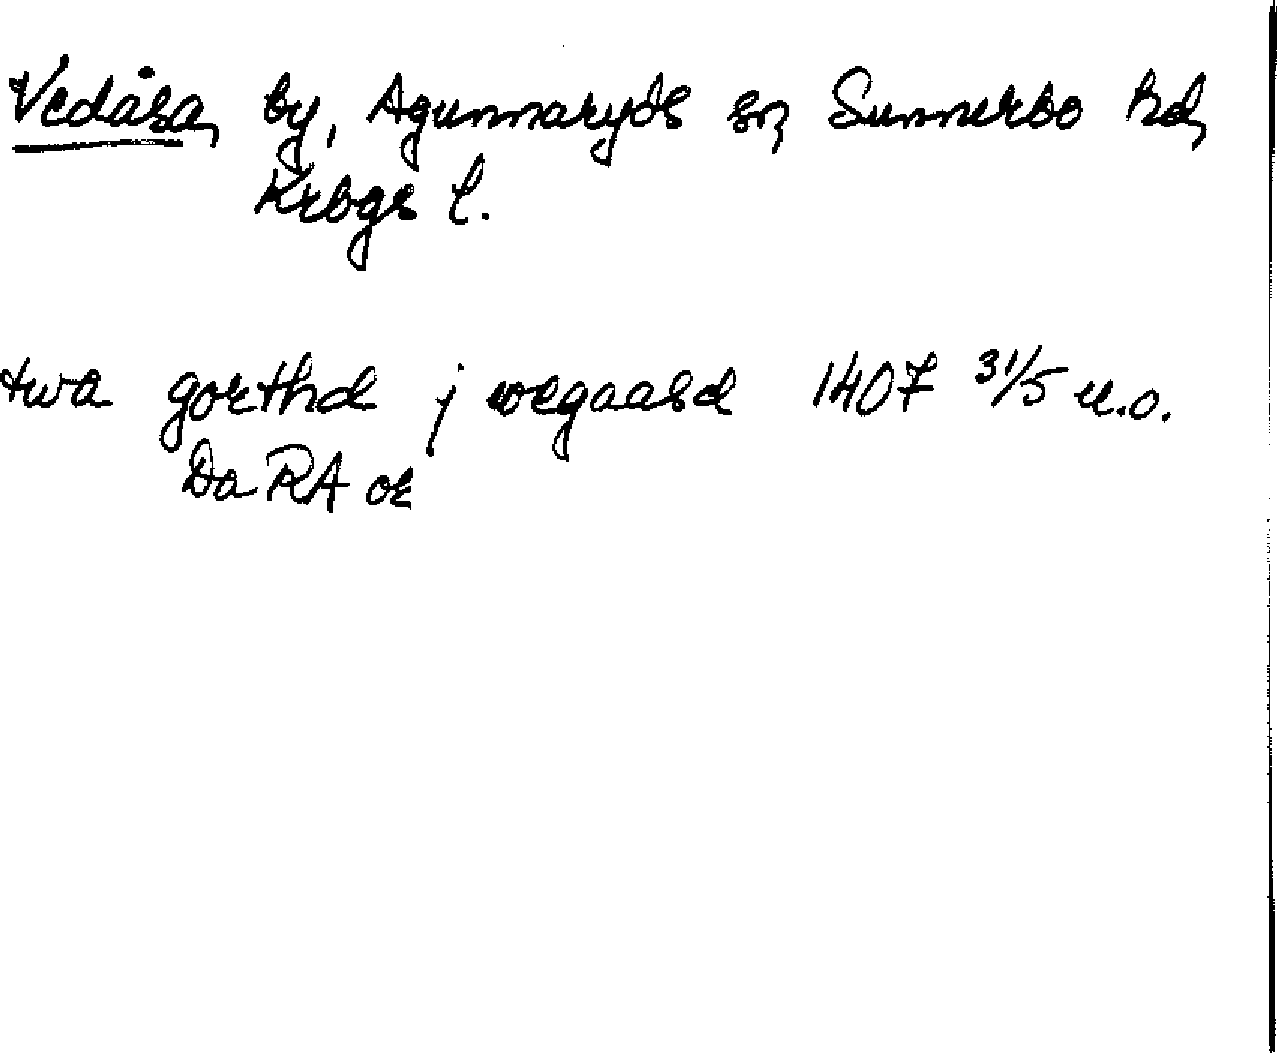 Vedåsa, by, Agunnaryds sn, Sunnerbo hd,
Krbgs l.
twa gorthæ j wegaasæ 1407 31/5 u.o.
Da RA or